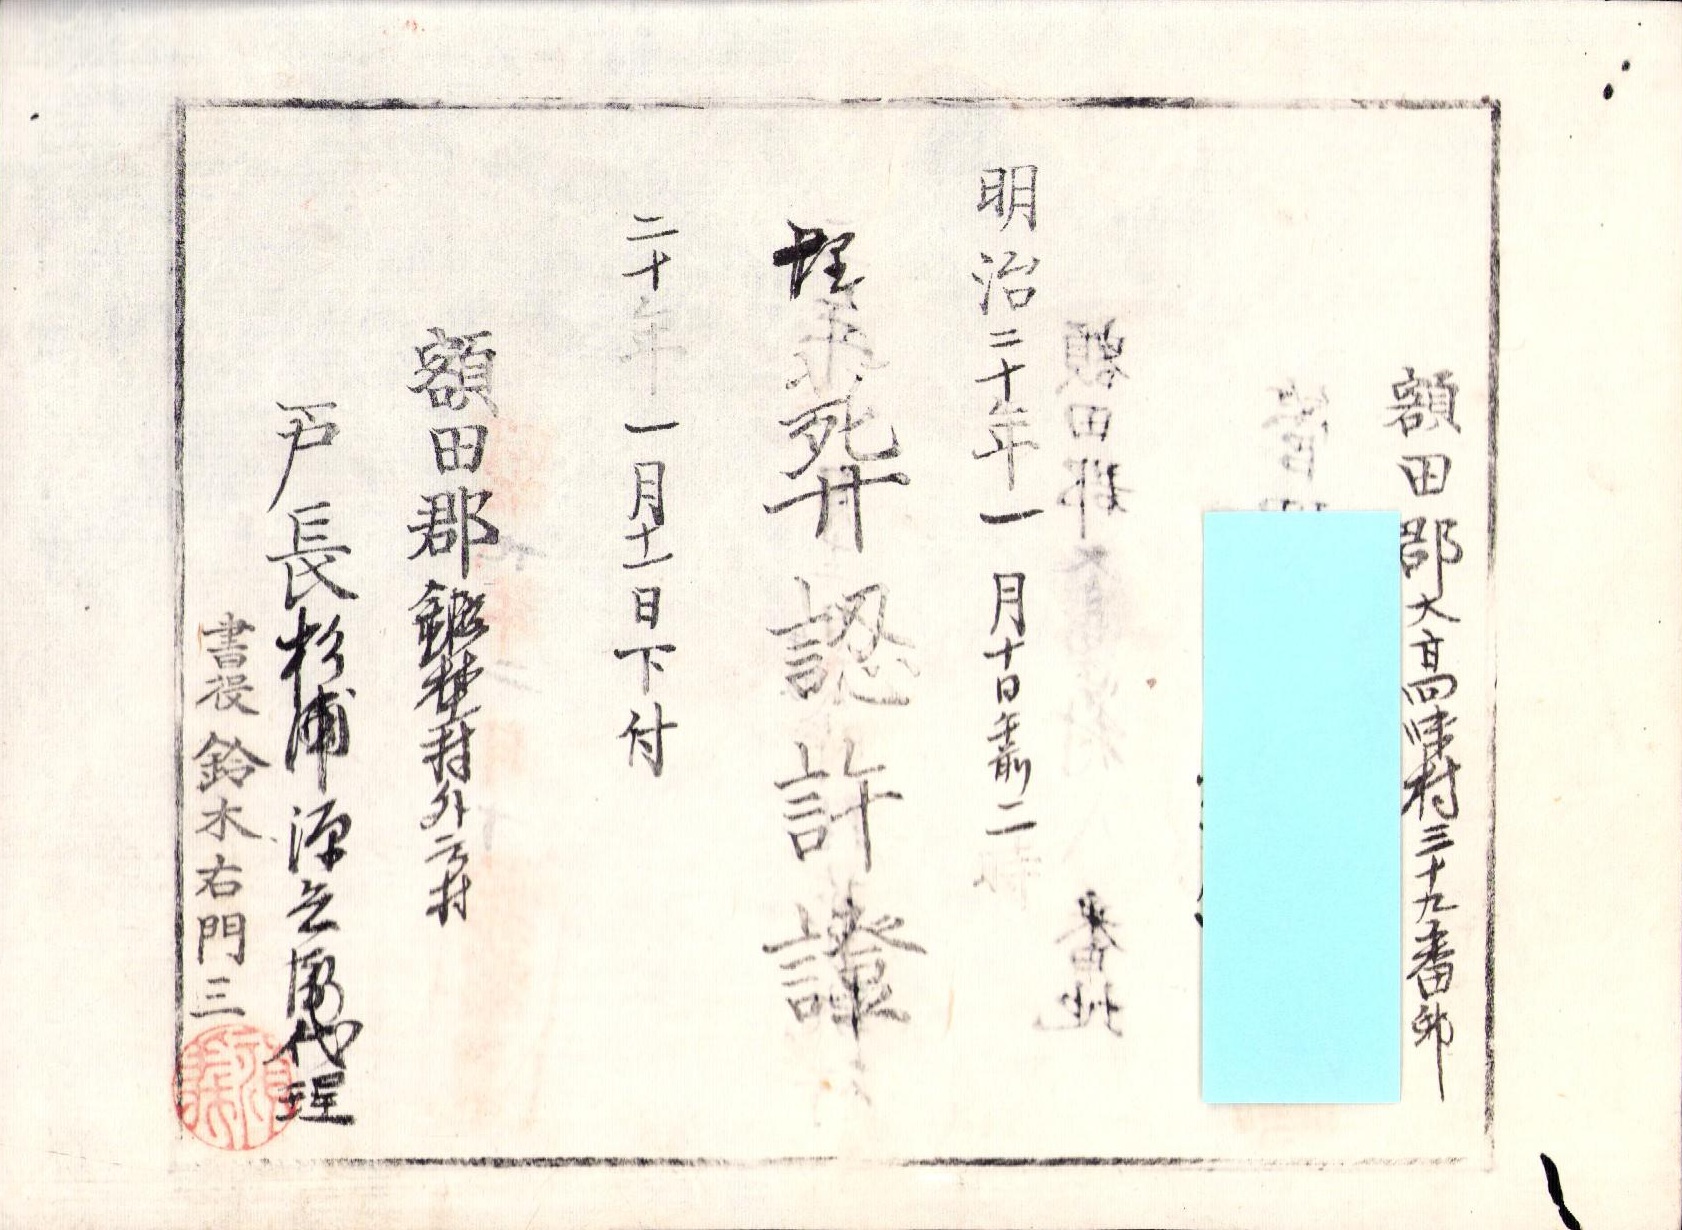 額田郡大高味村三十九番邸
明治二十年一月十日午前二
埋葬認許證
二十年一月十一日下付
額田郡樫村外村
戸長杉浦源兵衛代理
書役鈴木右門三